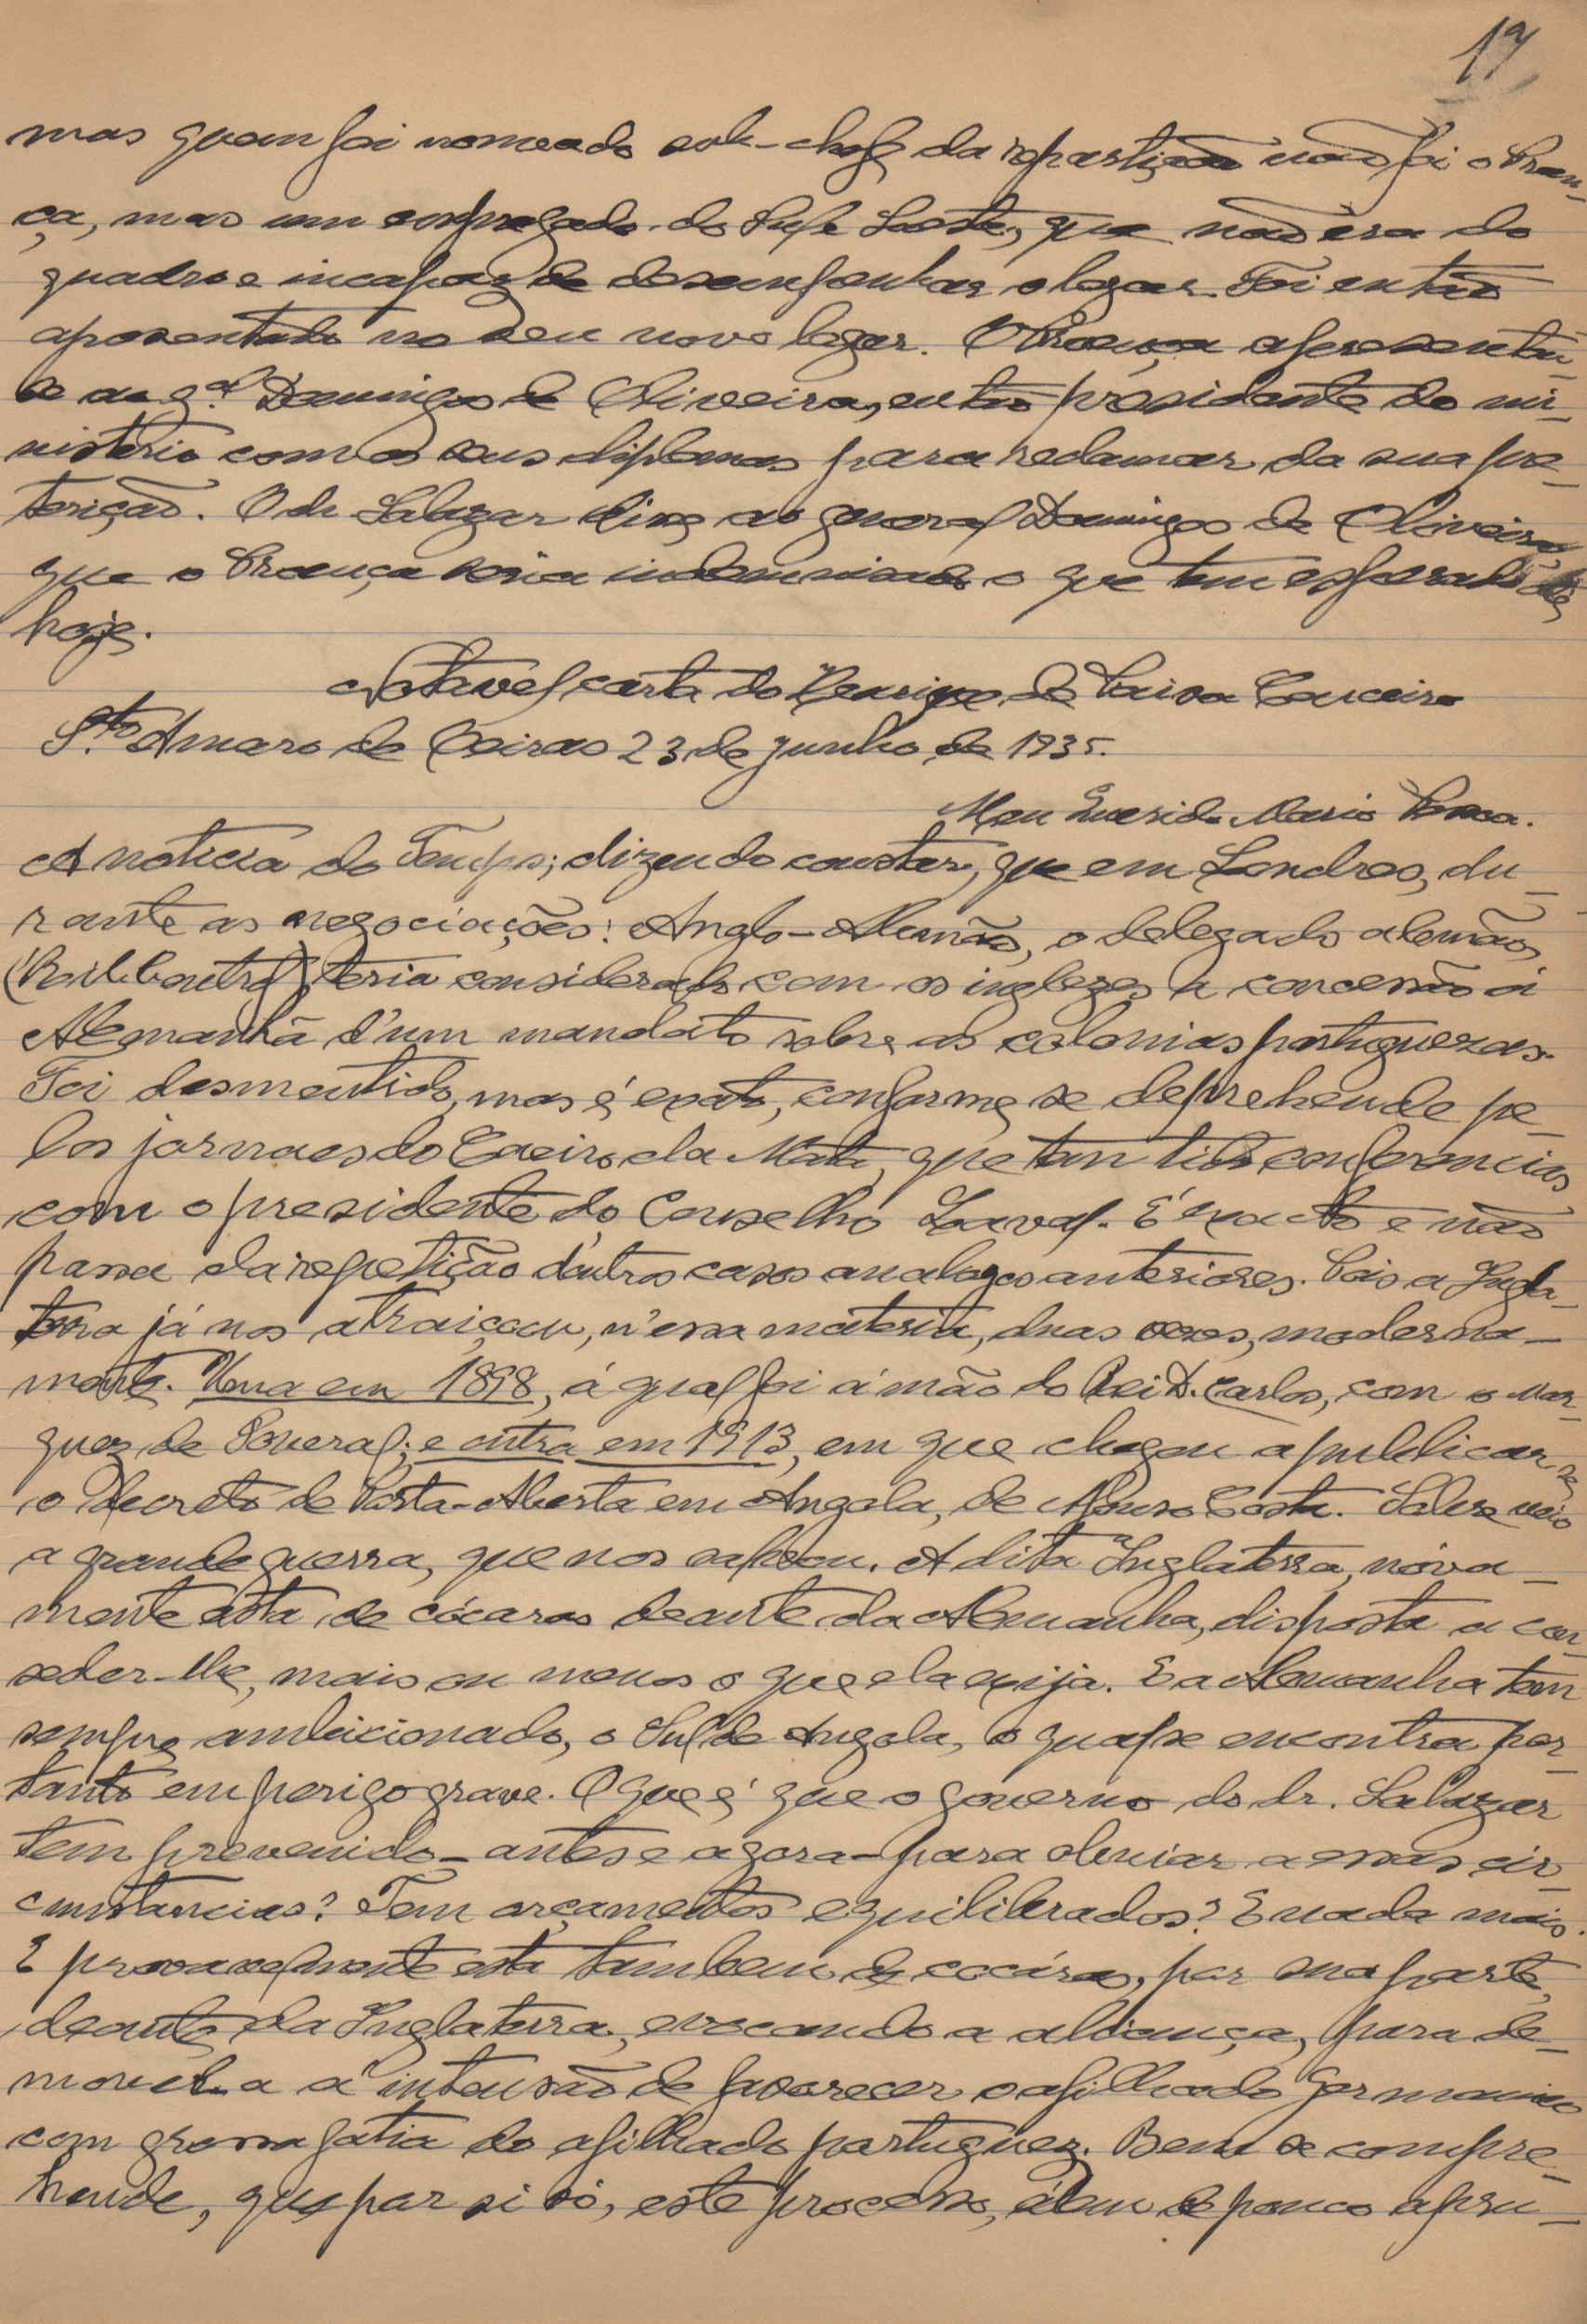 17
mas quem foi nomeado sub-chefe da repartição não foi o Proen-
ça, mas um empregado do que não era do
quadro e incapaz de desempenhar o logar. Foi então
aposentado no seu novo logar. O Proença apresentou-
se ao g.al Domingos de Oliveira, então presidente do mi-
nisterio com os seus diplomas para reclamar da sua pre-
terição. O dr Salazar disse ao general Domingos de Oliveira
que o Proença seria indemnisado o que tem esperado até
hoje.
Notavel carta do Henrique de Paiva Couceiro
S.to Amaro de Oeiras 23 de junho de 1935.
Meu Querido Mario
A noticia do Temps, dizendo constar, que em Londres, du-
rante as negociações: Anglo-Alemãs, o delegado alemão,
(Ribbentrop) teria considerado com os inglezes a concessão á
Alemanha d'um mandato sobre as colonias portuguezas.
Foi desmentido, mas é exato, conforme se deprehende pe-
los jornaes do Caeiro da Mata, que tem tido conferencias
com o presidente do Conselho Laval. É exacto e não
passa da repetição d'outros casos analogos anteriores. Pois a Ingla-
terra já nos atraiçoou, n'essa materia, duas vezes, moderna-
mente. Uma em 1898, á qual foi á mão do Rei D. Carlos, com o Mar-
quez de Soveral; e outra em 1913, em que chegou a publicar-se
o decreto de Porta-Aberta em Angola, de Afonso Costa. veio
a grande guerra, que nos salvou. A dita Inglaterra, nova-
mente esta de cócaras deante da Alemanha, disposta a con-
seder-lhe, mais ou menos o que ela exija. E a Alemanha tem
sempre ambicionado, o Sul de Angola, o qual se encontra por-
tanto em perigo grave. O que é que o governo do dr. Salazar
tem prevenido - antes e agora - para obviar a essas cir-
cunstancias? Tem orçamentos equilibrados? E nada mais.
E provavelmente esta tambem de cocáras, por sua parte,
deante da Inglaterra, evocando a aliança, para de-
move-la a intensão de favorecer o afilhado germanico
com grossa fatia do afilhado portuguez. Bem se compre-
hende, que por si só, este processo, álem de pouco apru-